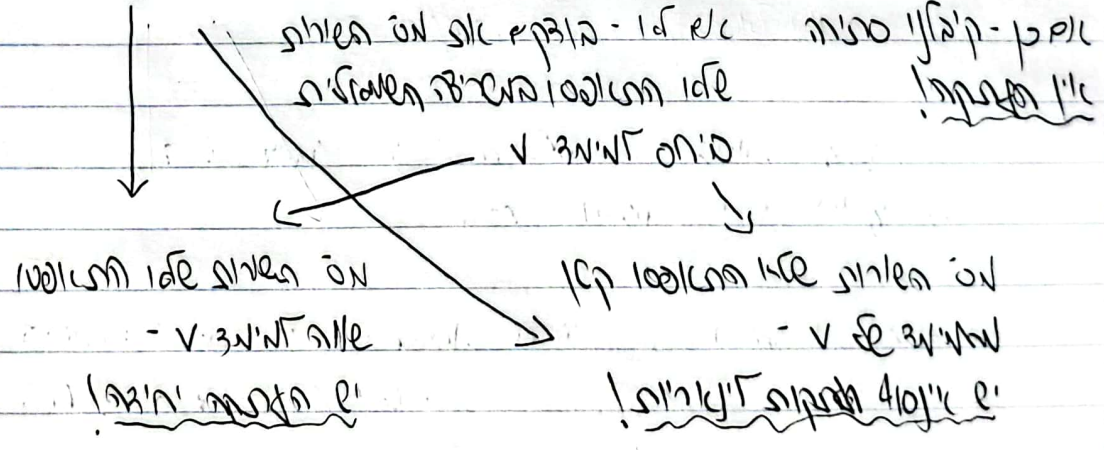 אם כן - קיבלנו סתירה
אין העתקה!
אם לא - בודקים את מס' השורות
שלא התאפסו במטריצה השמאלית
ביחס למימד V
מס' השורות שלא התאפסו קטן
מהמימד של V -
יש אינסוף העתקות לינאריות!
מס' השורות שלא התאפסו
שווה למימד V -
יש העתקה יחידה!